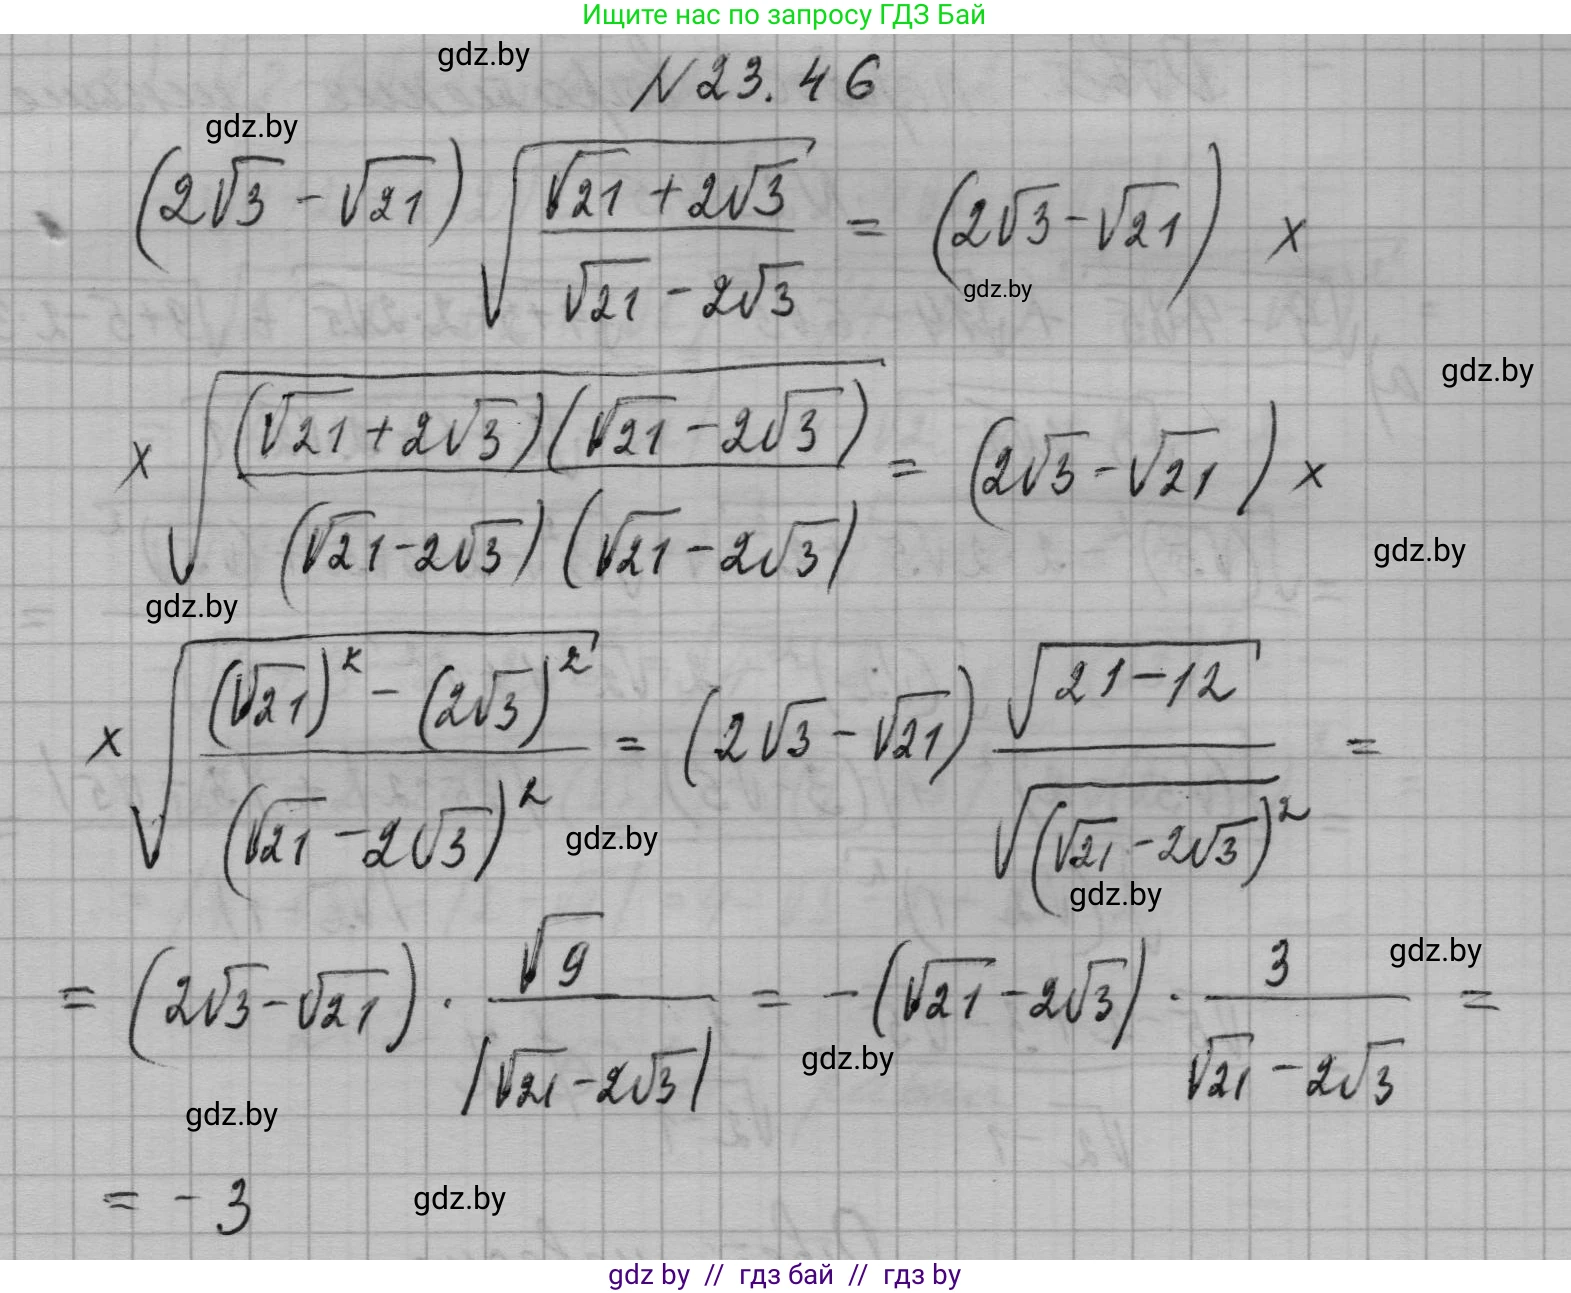 Ищите нас по запросу ГДЗ Бай
gdz.by
N 23.46
gdz.by
(2√3 - √21) √((√21 + 2√3)/(√21 - 2√3)) = (2√3 - √21) ×
gdz.by
gdz.by
× √(((√21 + 2√3)(√21 - 2√3))/((√21 - 2√3)(√21 - 2√3))) = (2√3 - √21) ×
gdz.by
gdz.by
× √(((√21)² - (2√3)²)/((√21 - 2√3)²)) = (2√3 - √21) √(21 - 12)/√((√21 - 2√3)²) =
gdz.by
gdz.by
= (2√3 - √21) · √9/|√21 - 2√3| = -(√21 - 2√3) · 3/(√21 - 2√3) =
gdz.by
gdz.by
gdz.by
= - 3
gdz.by
gdz by // гдз бай // гдз by